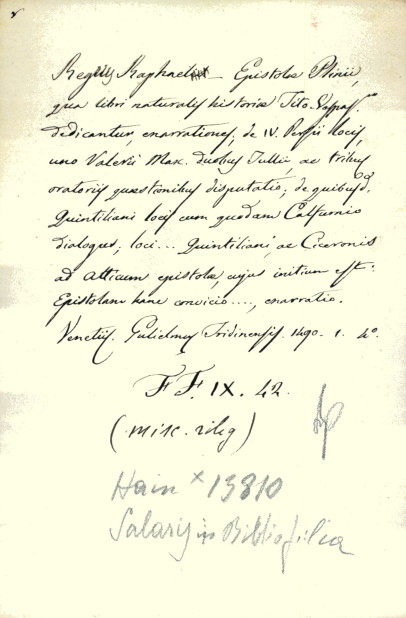 Regius Raphael Epistolæ Plinii,
qua libri naturalis historiæ Tito Vespas.
dedicantur, enarrationes, de IV. Persii locis,
uno Valerii Max. duobus Tullii, ac tribus
oratoriis quæstionibus disputatio; de quibusd.
Quintiliani locis cum quodam Calfurnio
dialogus; loci... Quintiliani, ac Ciceronis
ad Atticum epistolæ, cujus initium est:
Epistolam hanc convicio...., enarratio.
Venetiis. Gulielmus Tridinensis. 1490. 1. 4°.
FF. IX. 42.
(misc. rileg)
Hain x 13810
in Bibliofilia